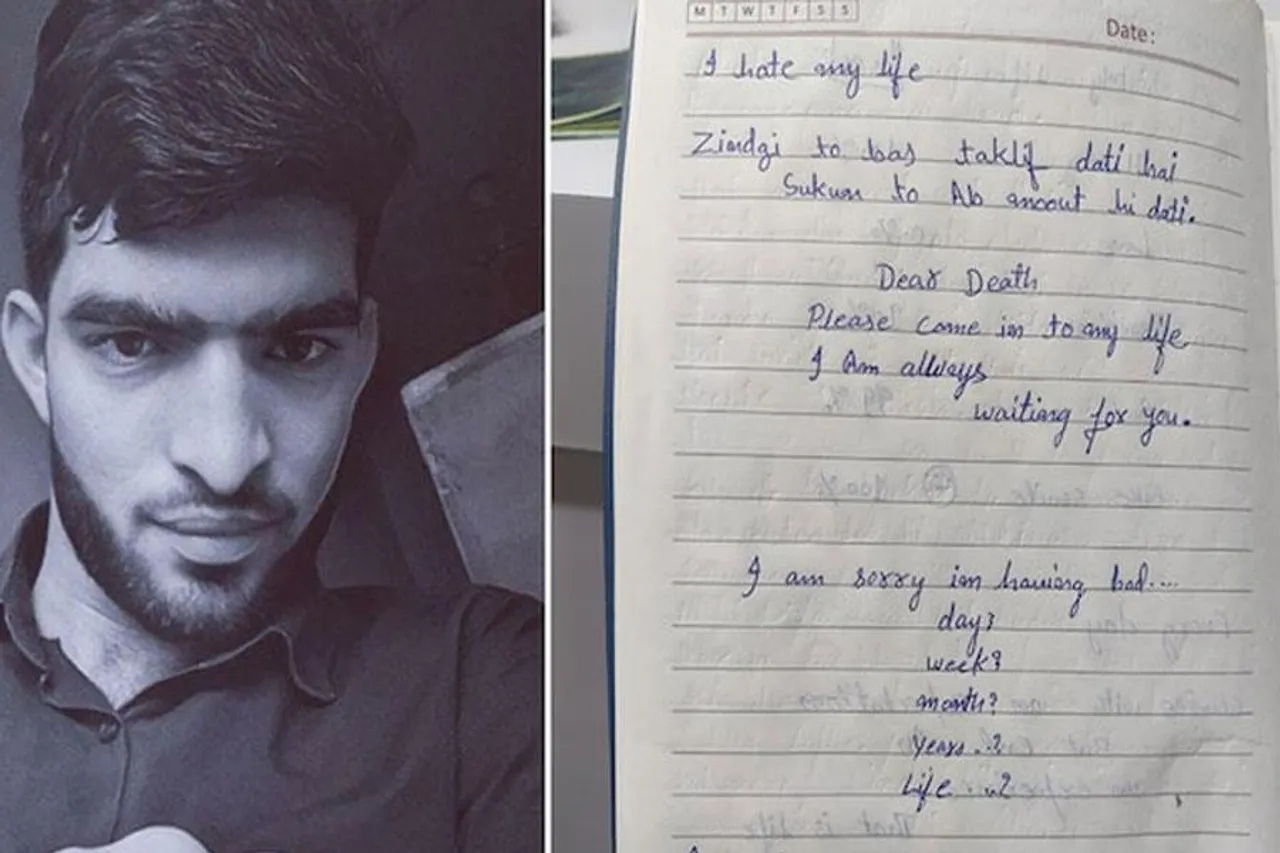 M T W T F S S
Date:
I hate my life
Zindgi to bas taklif dati hai
Sukun to Ab moout hi dati.
Dear Death
Please come in to my life
I Am allways
waiting for you.
I am sorry im having bad....
day?
week?
month?
years..?
Life..?